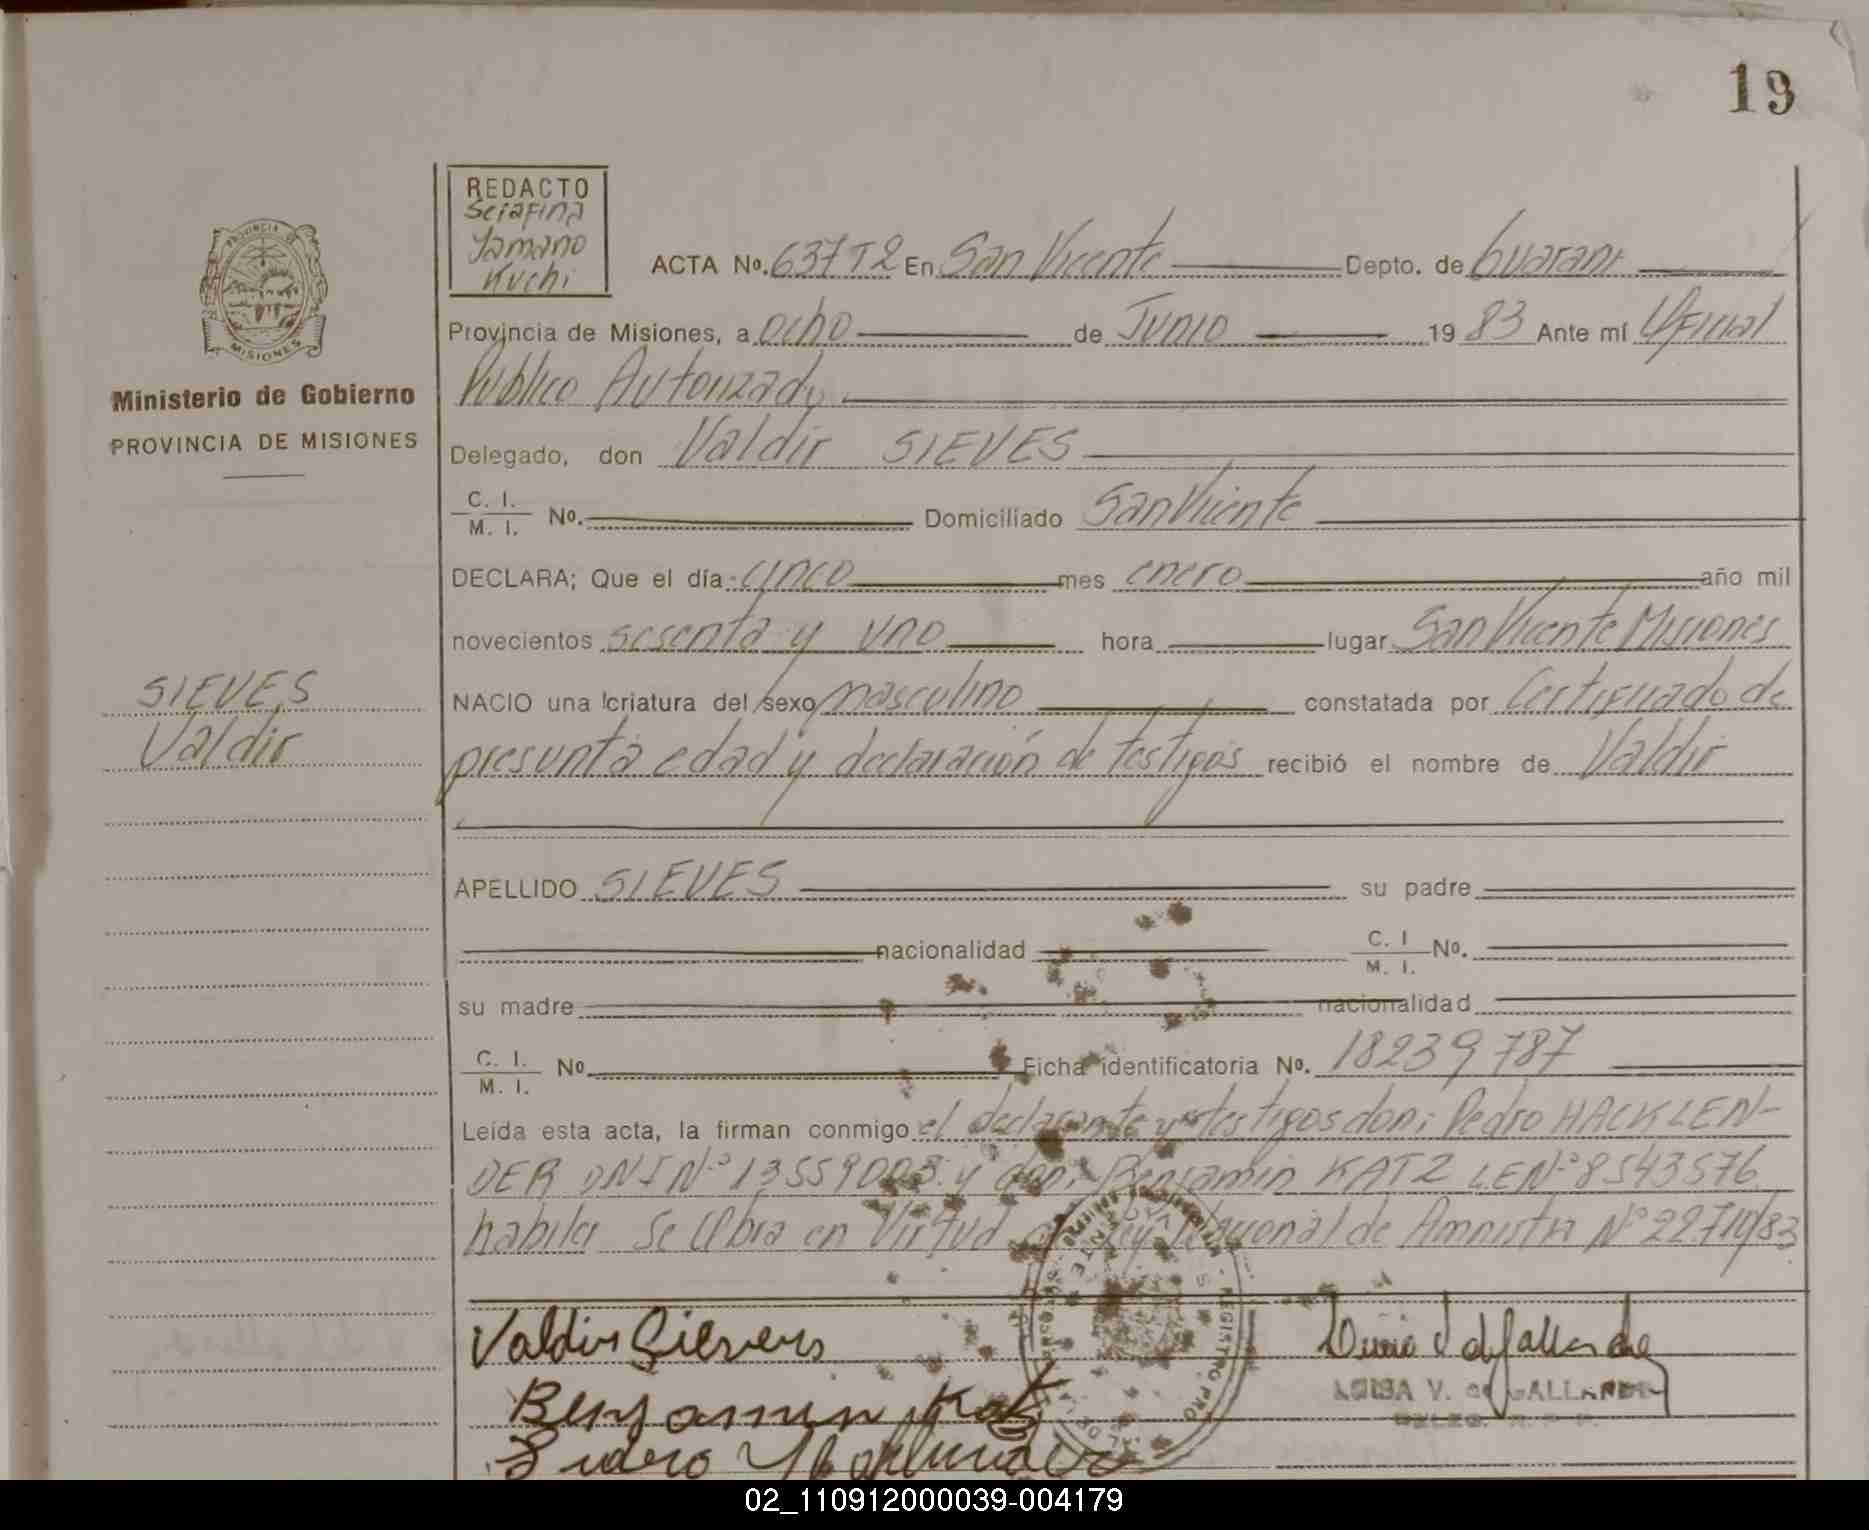 19
REDACTO
Serafina
Yamano
Kuchi
PROVINCIA DE
MISIONES
Ministerio de Gobierno
PROVINCIA DE MISIONES
ACTA No. 637 T2 En San Vicente Depto. de Guarani
Provincia de Misiones, a ocho de Junio 19 83 Ante mí Oficial
Público Autorizado
Delegado, don Valdir SIEVES
C. I. / M. I. No. Domiciliado San Vicente
DECLARA; Que el día cinco mes enero año mil
novecientos sesenta y uno hora lugar San Vicente Misiones
SIEVES
Valdir
NACIO una criatura del sexo masculino constatada por Certificado de
presunta edad y declaración de testigos recibió el nombre de Valdir
APELLIDO SIEVES su padre
nacionalidad C. I / M. I. No.
su madre nacionalidad
C. I. / M. I. No Ficha identificatoria No. 18239787
Leída esta acta, la firman conmigo el declarante y testigos don: Pedro HACKLEN-
DER DNI Nº 13559003 y don: Benjamin KATZ LE Nº 8543576
habiles Se Obra en Virtud Ley Nacional de Amnistia Nº 22710/83
Valdir Sievers
Benjamin Katz
LUISA V. de GALLARDO
REGISTRO PRO
02_110912000039-004179